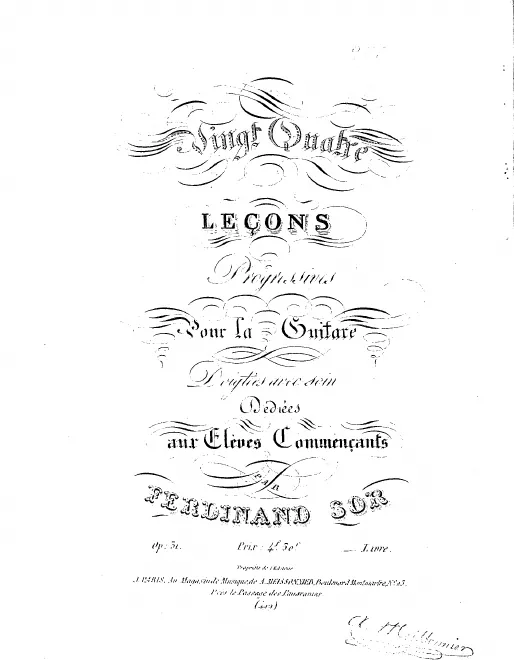 Vingt Quatre
LEÇONS
Progressives
Pour la Guitare
Doigtées avec soin
Dédiées
aux Elèves Commençants
PAR
FERDINAND SOR
Op: 31. Prix: 4f 50c Livre.
Propriété de l'Editeur
A PARIS, Au Magasin de Musique de A. MEISSONNIER, Boulevard Montmartre, No. 25.
Vers le Passage des Panoramas
A. Meissonnier